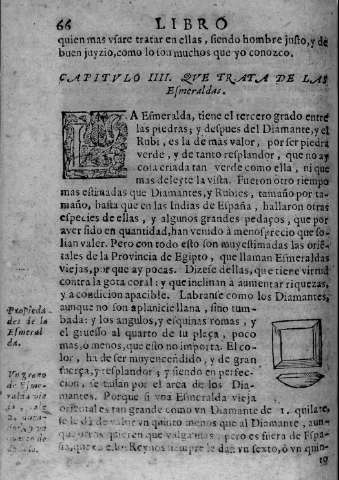 66 LIBRO
quien mas vsare tratar en ellas, siendo hombre justo, y de
buen juyzio, como lo son muchos que yo conozco.
CAPITVLO IIII. QVE TRATA DE LAS
Esmeraldas.
LA Esmeralda, tiene el tercero grado entre
las piedras; y despues del Diamante, y el
Rubi, es la de mas valor, por ser piedra
verde, y de tanto resplandor, que no ay
cosa criada tan verde como ella, ni que
mas deleyte la vista. Fueron otro tiempo
mas estimadas que Diamantes, y Rubies, tamaño por ta-
maño, hasta que en las Indias de España, hallaron otras
especies de ellas, y algunos grandes pedaços, que por
aver sido en quantidad, han venido à menosprecio que so-
lian valer. Pero con todo esto son muy estimadas las oriē-
tales de la Provincia de Egipto, que llaman Esmeraldas
viejas, por que ay pocas. Dizese dellas, que tiene virtud
contra la gota coral: y que inclinan à aumentar riquezas,
y a condicion apacible. Labranse como los Diamantes,
aunque no
sino tum-
bada: y los angulos, y esquinas romas, y
el gruesso al quarto de su plaça, poco
mas, o menos, que esto no importa. El co-
lor, ha de ser muy encendido, y de gran
fuerça, y resplandor; y siendo en perfec-
cion, se tassan por el area de los Dia-
mantes. Porque si vna Esmeralda vieja
oriental es tan grande como vn Diamante de 1. quilate,
se le dà de valor vn quinto menos que al Diamante, aun-
que otros quieren que valga
pero es fuera de Espa-
ña, que en los Reynos siempre le dan vn sexto, ò vn quin-
to
Propieda-
des de la
Esmeral-
da.
Vn grano
de Esme-
ralda vie-